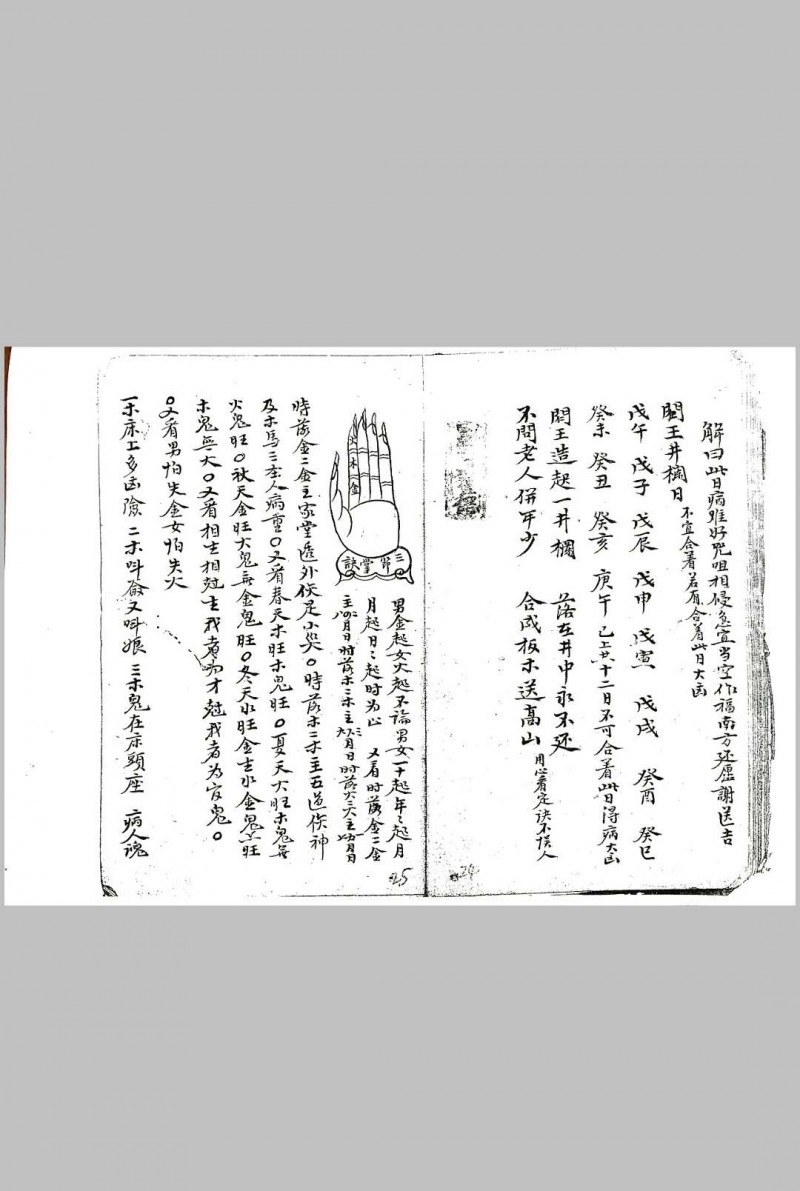 解曰此日病難好咒咀相侵急宜當空作福南方还愿謝送吉
閻王井欄日
不宜合着若有合着此日大凶
戊午 戊子 戊辰 戊申 戊寅 戊戌 癸酉 癸巳
癸未 癸丑 癸亥 庚午 已上共十二日不可合着此日得病大凶
閻王造起一井欄 落在井中永不还
不問老人併年少 合成板木送高山 用心看定訣不悮人
24
火木金
三第掌訣
男金起女火起不論男女一十起年年起月
月起日日起時为止 又看時落金二金
主 月日時落木二木主 月日時落火二火主 月日
時落金二金主家堂透外伕是小哭〇時落木二木主五道伕神
及木馬三木人病重〇又看春天木旺木鬼旺〇夏天火旺木鬼無
火鬼旺〇秋天金旺火鬼無金鬼旺〇冬天水旺金吉水金鬼旺
木鬼無火〇又看相生相尅生我者为才尅我者为官鬼〇
〇又看男怕失金女怕失火
一木床上多凶險 二木叫爺又叫娘 三木鬼在床頭座 病人魂
25